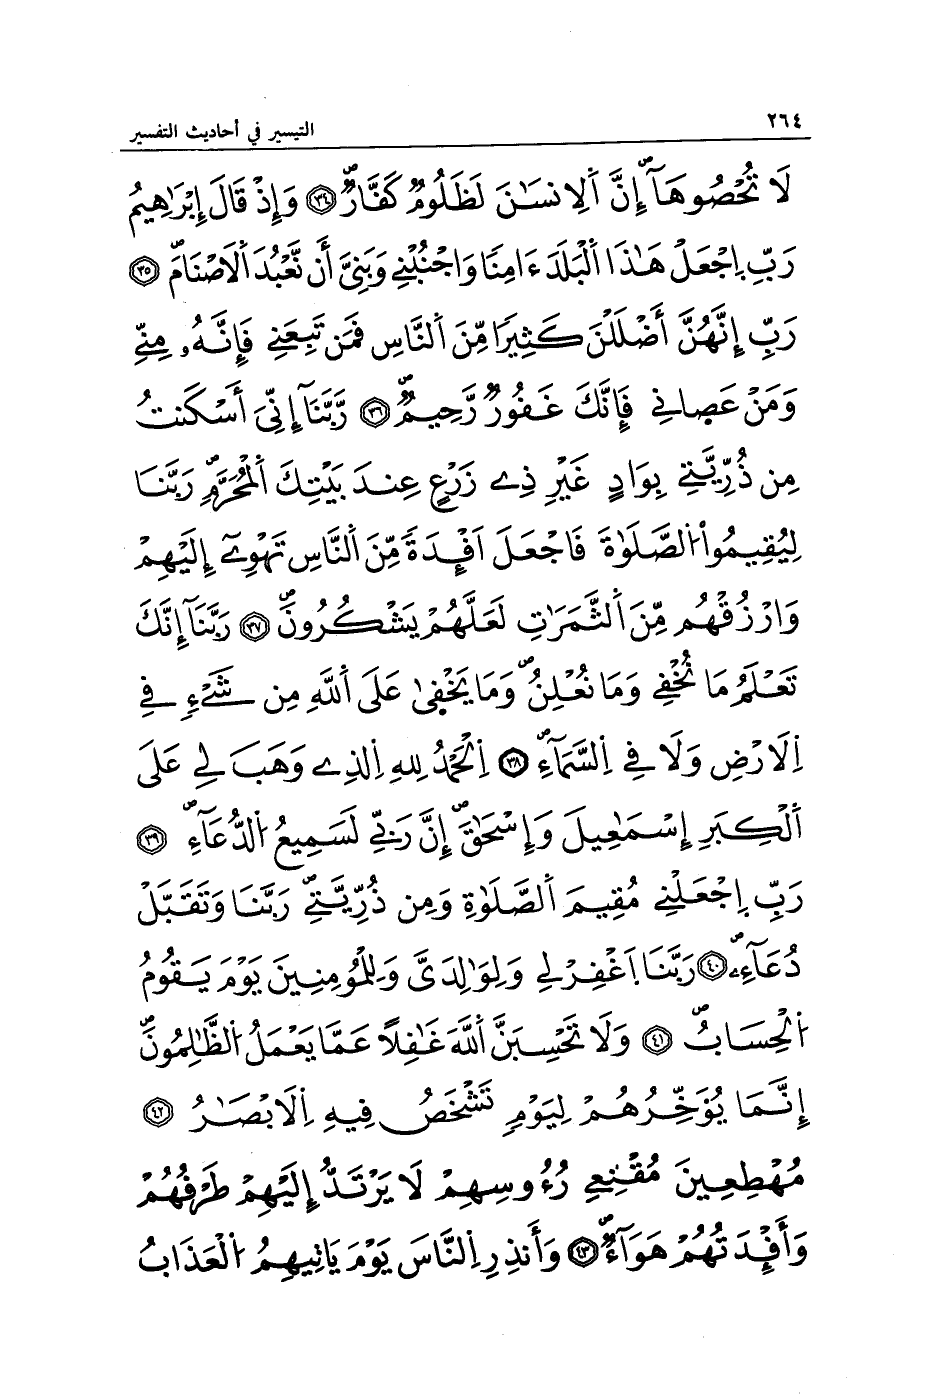 ٢٦٤ التيسير في أحاديث التفسير
لَا تُحْصُوهَآ إِنَّ اَ۬لِانسَٰنَ لَظَلُومٌ كَفَّارٌ ٣٤ وَإِذْ قَالَ إِبْرَٰهِيمُ
رَبِّ اِجْعَلْ هَٰذَا اَ۬لْبَلَدَ ءَامِنًا وَاجْنُبْنِے وَبَنِيَّ أَن نَّعْبُدَ اَ۬لَاصْنَامَ ٣٥
رَبِّ إِنَّهُنَّ أَضْلَلْنَ كَثِيرًا مِّنَ اَ۬لنَّاسِ فَمَن تَبِعَنِے فَإِنَّهُۥ مِنِّے
وَمَنْ عَصِانِے فَإِنَّكَ غَفُورٌ رَّحِيمٌ ٣٦ رَّبَّنَآ إِنِّيَ أَسْكَنتُ
مِن ذُرِّيَّتِے بِوَادٍ غَيْرِ ذِے زَرْعٍ عِندَ بَيْتِكَ اَ۬لْمُحَرَّمِ رَبَّنَا
لِيُقِيمُواْ اُ۬لصَّلَوٰةَ فَاجْعَلَ اَفْـِٕدَةً مِّنَ اَ۬لنَّاسِ تَهْوِےٓ إِلَيْهِمْ
وَارْزُقْهُم مِّنَ اَ۬لثَّمَرَٰتِ لَعَلَّهُمْ يَشْكُرُونَ ٣٧ رَبَّنَآ إِنَّكَ
تَعْلَمُ مَا نُخْفِے وَمَا نُعْلِنُ وَمَا يَخْفِىٰ عَلَى اَ۬للَّهِ مِن شَےْءٍ فِے
اِ۬لَارْضِ وَلَا فِے اِ۬لسَّمَآءِ ٣٨ اِ۬لْحَمْدُ لِلهِ اِ۬لذِے وَهَبَ لِے عَلَى
اَ۬لْكِبَرِ إِسْمَٰعِيلَ وَإِسْحَٰقَ إِنَّ رَبِّے لَسَمِيعُ اُ۬لدُّعَآءِ ٣٩
رَبِّ اِجْعَلْنِے مُقِيمَ اَ۬لصَّلَوٰةِ وَمِن ذُرِّيَّتِے رَبَّنَا وَتَقَبَّلْ
دُعَآءِۦ ٤٠ رَبَّنَا اَ۪غْفِرْ لِے وَلِوَٰلِدَيَّ وَلِلْمُومِنِينَ يَوْمَ يَقُومُ
اُ۬لْحِسَابُ ٤١ وَلَا تَحْسِبَنَّ اَ۬للَّهَ غَٰفِلًا عَمَّا يَعْمَلُ اُ۬لظَّٰلِمُونَ
إِنَّمَا يُؤَخِّرُهُمْ لِيَوْمٍ تَشْخَصُ فِيهِ اِ۬لَابْصَٰرُ ٤٢
مُهْطِعِينَ مُقْنِعِے رُءُوسِهِمْ لَا يَرْتَدُّ إِلَيْهِمْ طَرْفُهُمْ
وَأَفْـِٕدَتُهُمْ هَوَآءٌ ٤٣ وَأَنذِرِ اِ۬لنَّاسَ يَوْمَ يَاتِيهِمُ اُ۬لْعَذَابُ